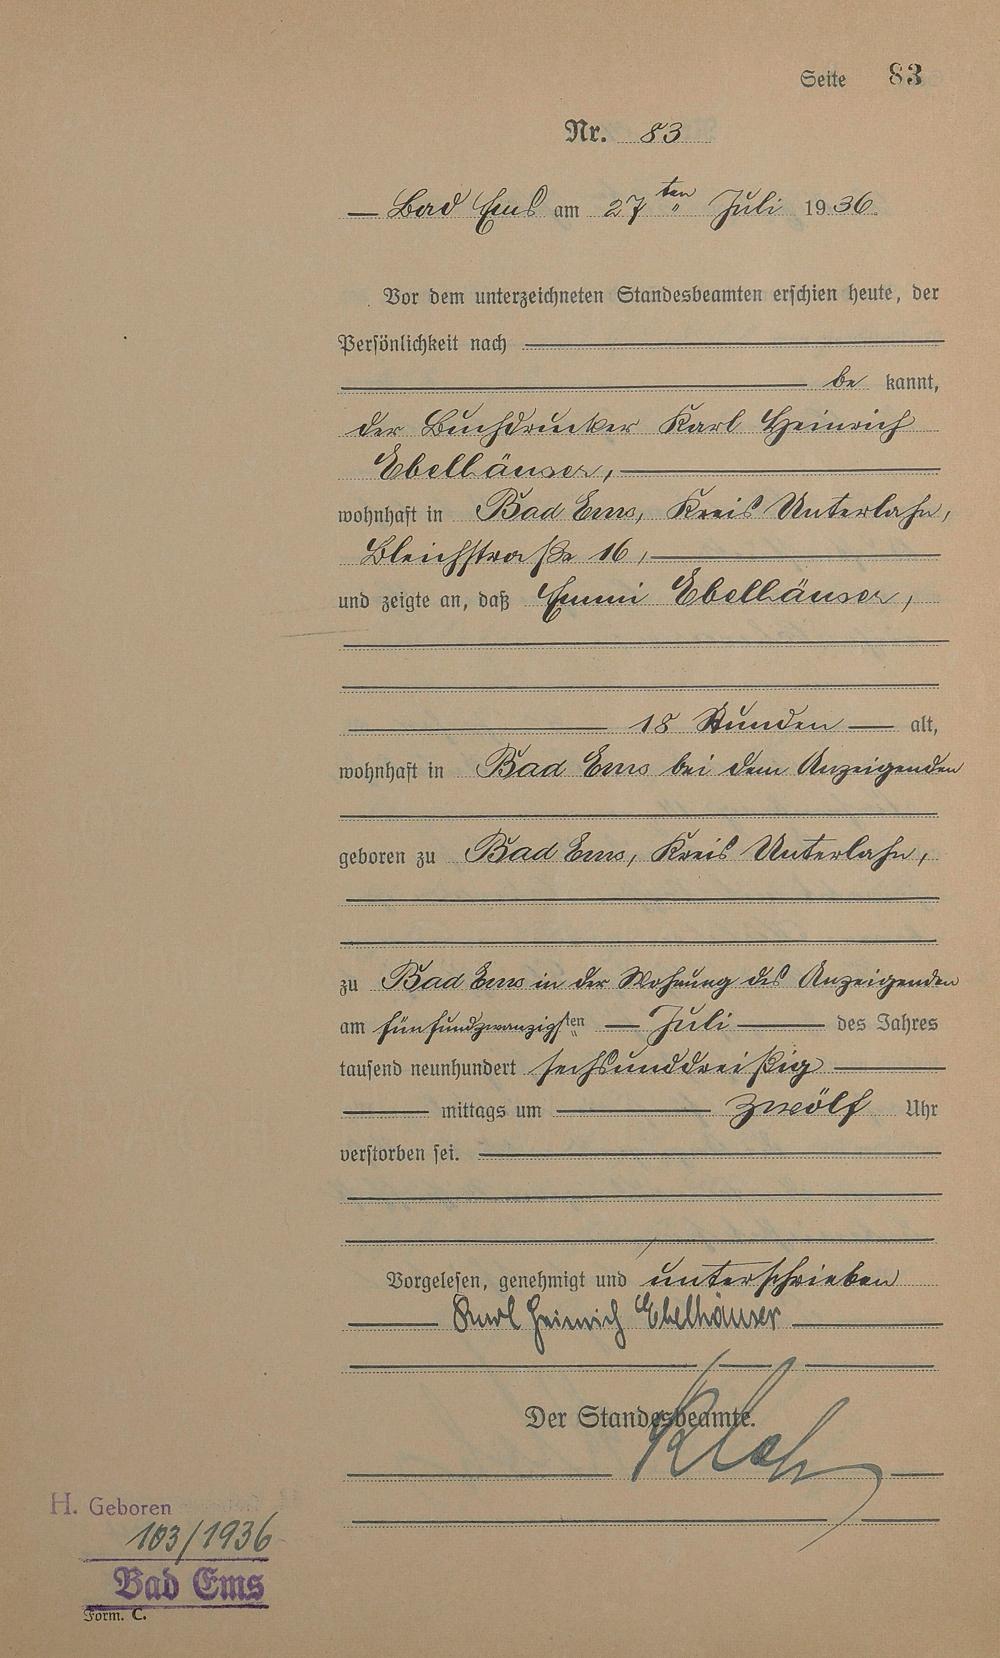 Seite 83
Nr. 83
Bad Ems am 27ten Juli 1936.
Vor dem unterzeichneten Standesbeamten erschien heute, der
Persönlichkeit nach
be kannt,
der Buchdrucker Karl Heinrich
Ebelhäuser,
wohnhaft in Bad Ems, Kreis Unterlahn,
Bleichstraße 16,
und zeigte an, daß Emmi Ebelhäuser,
18 Stunden alt,
wohnhaft in Bad Ems bei dem Anzeigenden
geboren zu Bad Ems, Kreis Unterlahn,
zu Bad Ems in der Wohnung des Anzeigenden
am fünfundzwanzigsten Juli des Jahres
tausend neunhundert sechsunddreißig
mittags um zwölf Uhr
verstorben sei.
Vorgelesen, genehmigt und unterschrieben
Karl Heinrich Ebelhäuser
Der Standesbeamte.
H. Geboren
103/1936
Bad Ems
Form. C.